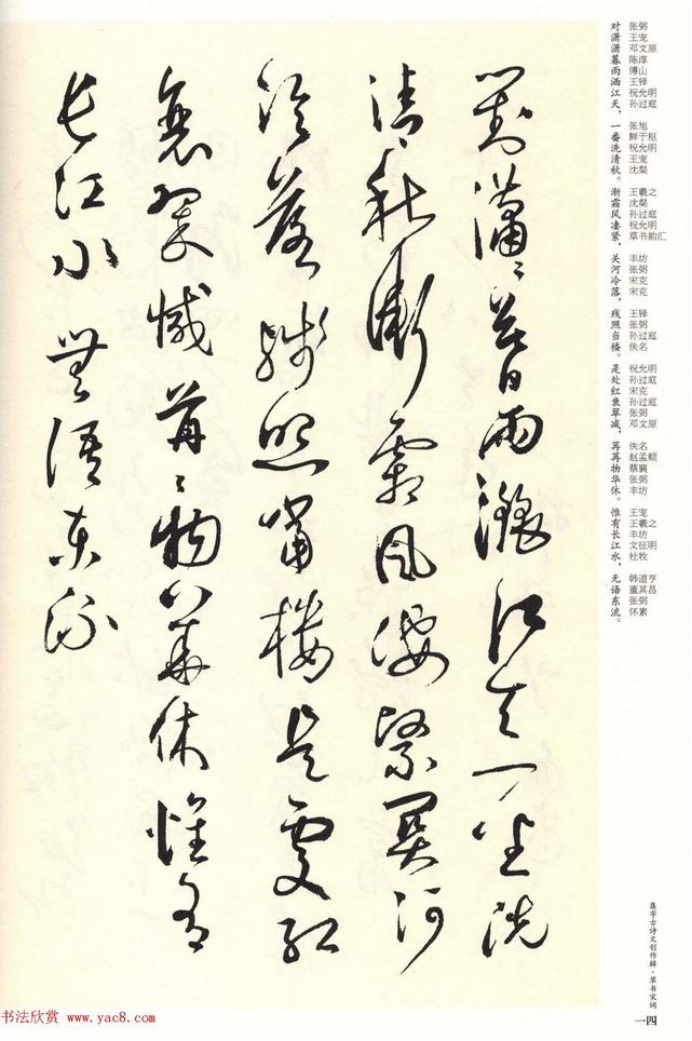 對瀟々暮雨灑江天一番洗
清秋漸霜風淒緊關河
冷落殘照當樓是處紅
衰翠減苒々物華休惟有
長江水無語東流
对潇潇暮雨洒江天，一番洗清秋。渐霜风凄紧，关河冷落，残照当楼。是处红衰翠减，苒苒物华休。惟有长江水，无语东流。
张弼
王宠
邓文原
陈淳
傅山
王铎
祝允明
孙过庭
张旭
鲜于枢
祝允明
王宠
沈粲
王羲之
沈粲
孙过庭
祝允明
草书韵汇
丰坊
张弼
宋克
宋克
王铎
张弼
孙过庭
佚名
祝允明
孙过庭
宋克
孙过庭
张弼
邓文原
佚名
赵孟頫
蔡襄
张弼
丰坊
王宠
王羲之
丰坊
文征明
杜牧
韩道亨
董其昌
张弼
怀素
集字古诗文创作辑·草书宋词
一四
书法欣赏 www.yac8.com